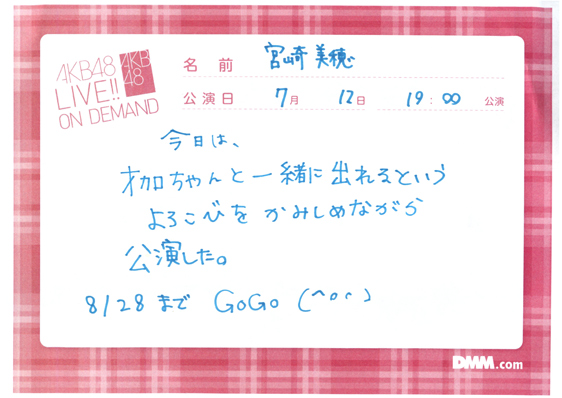 AKB48
LIVE!!
ON DEMAND
AKB
48
名 前 宮崎 美穂
公演日 7月 12日 19:00 公演
今日は、
才加ちゃんと一緒に出れるという
よろこびを かみしめながら
公演した。
8/28まで GoGo (^o^)
DMM.com